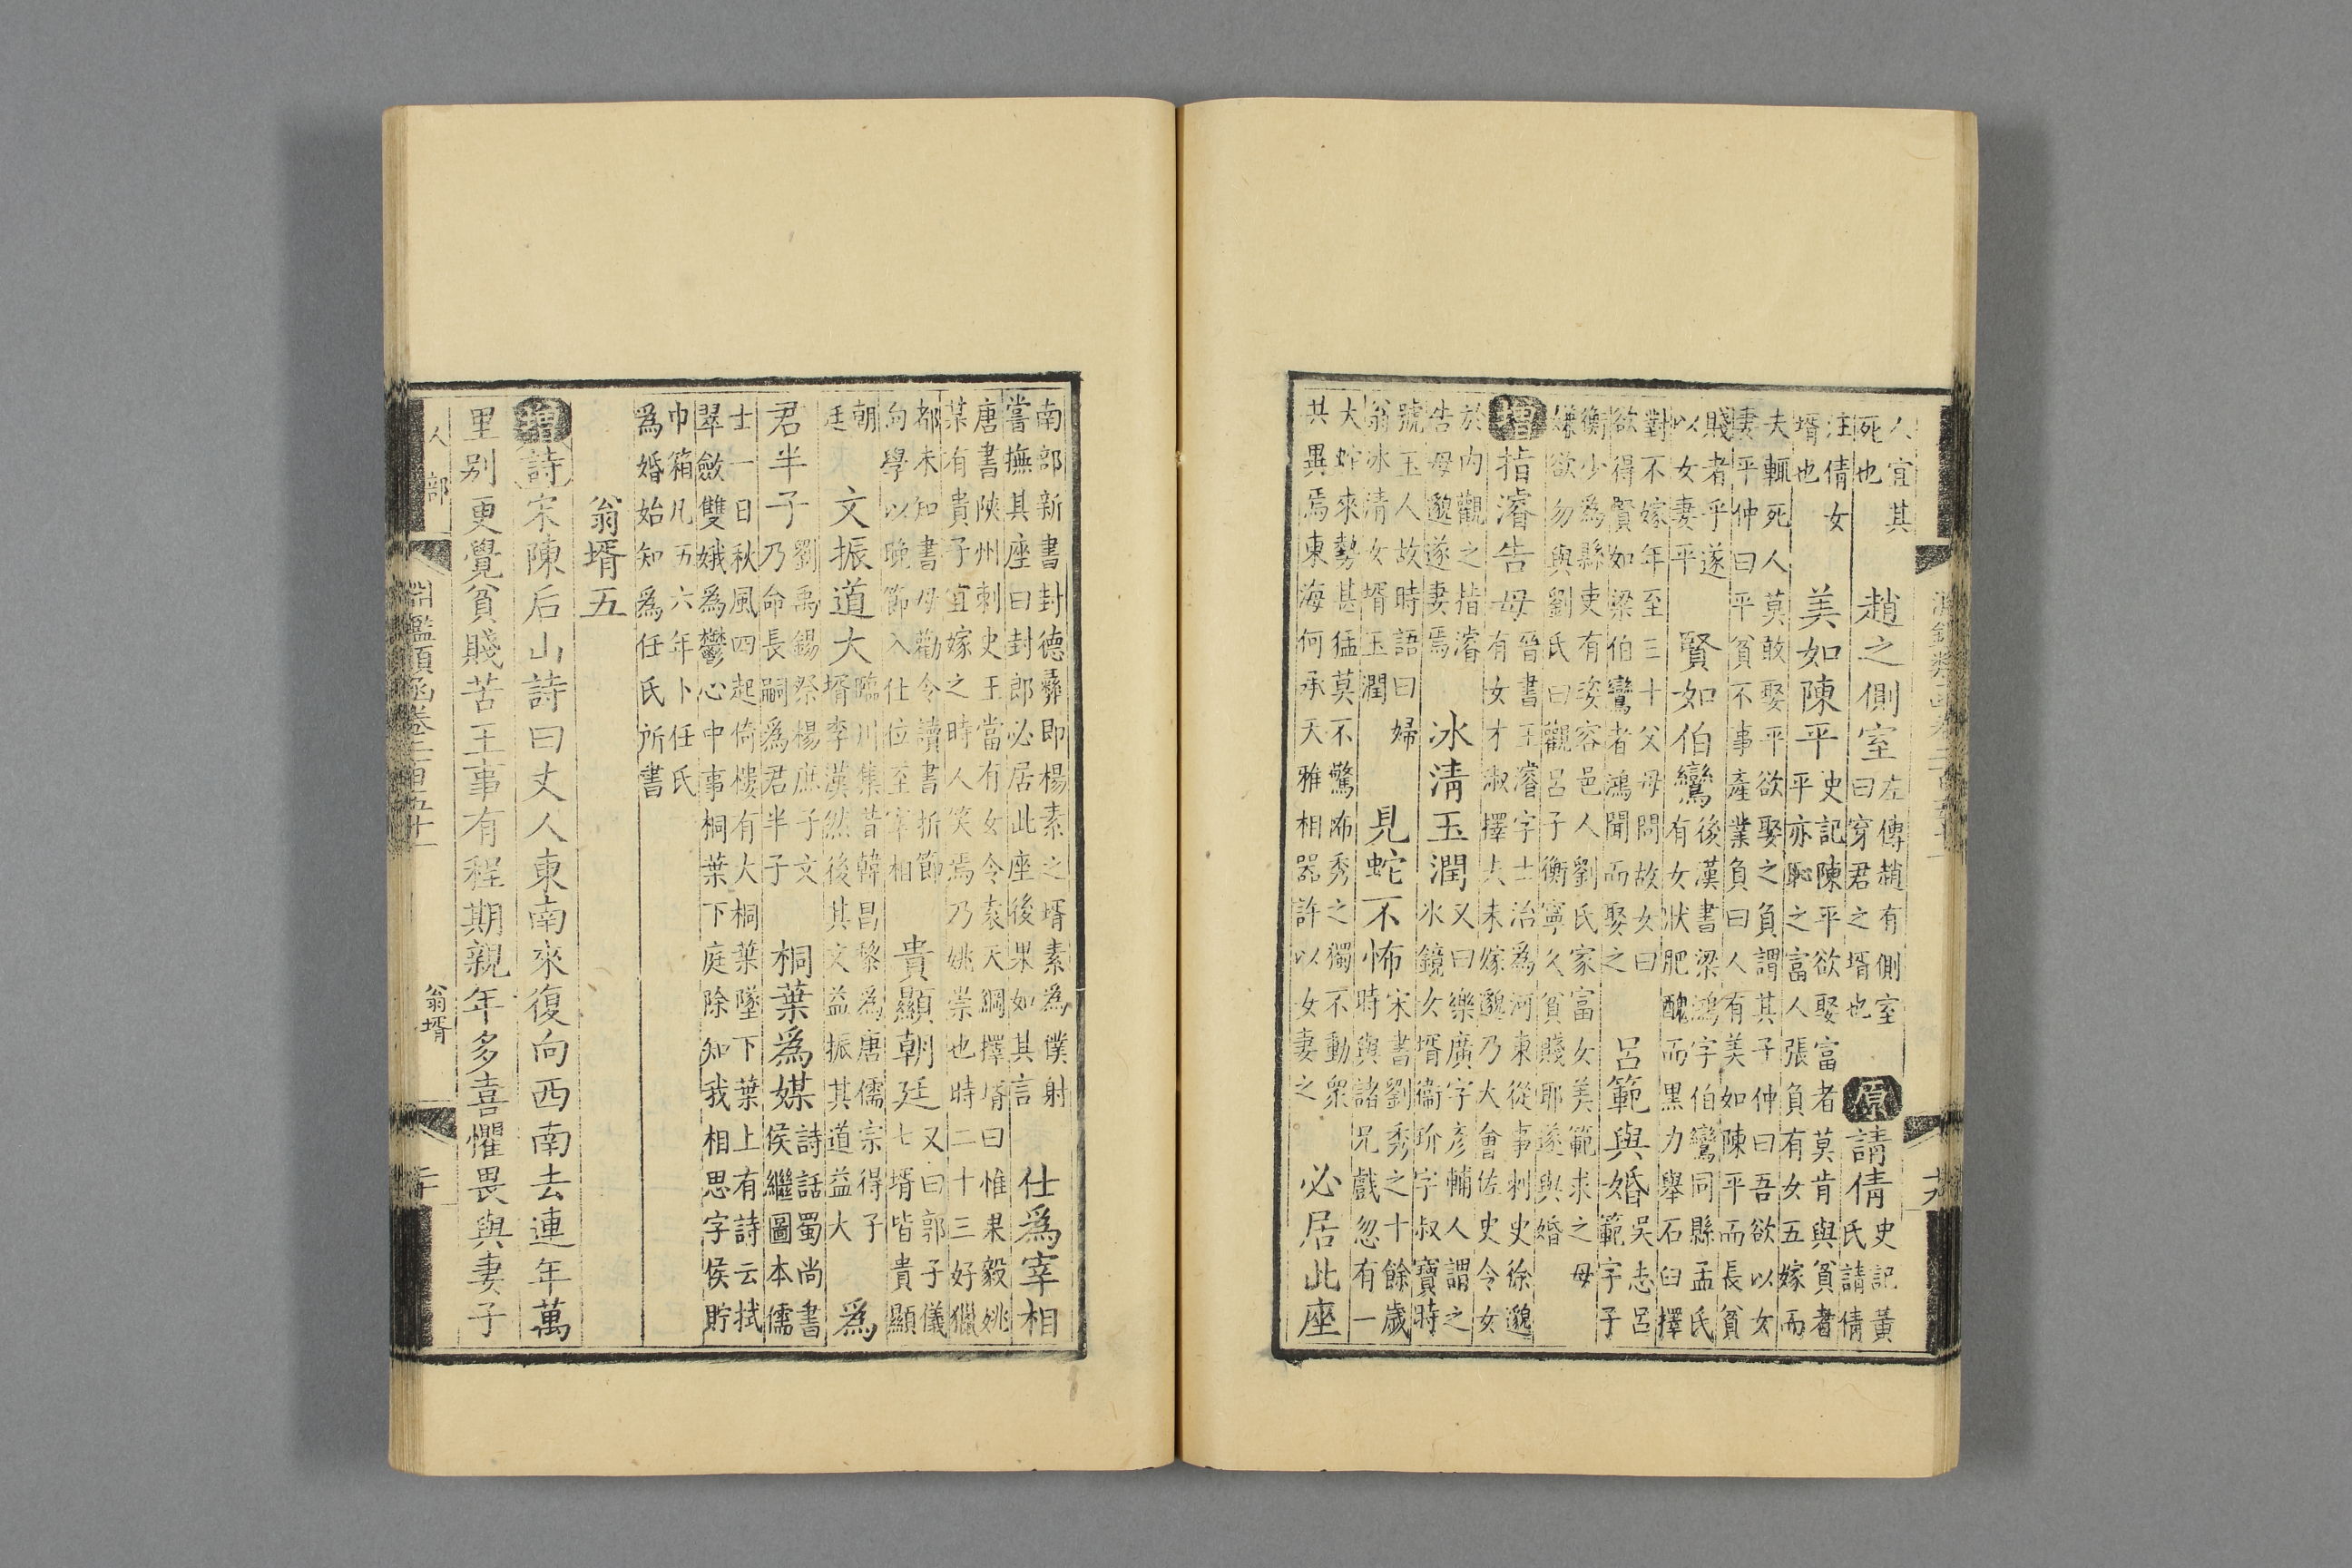 人宜其死也 趙之側室 左傳趙有側室曰穿君之壻也 原 請倩 史記黃氏請倩
注倩女壻也 美如陳平 史記陳平欲娶富者莫肯與貧者平亦恥之富人張負有女五嫁而
夫輒死人莫敢娶平欲娶之負謂其子仲曰吾欲以女妻平仲曰平貧不事產業負曰人有美如陳平而長貧
賤者乎遂以女妻平 賢如伯鸞 後漢書梁鴻字伯鸞同縣孟氏有女狀肥醜而黑力舉石臼擇
對不嫁年至三十父母問故女曰欲得賢如梁伯鸞者鴻聞而娶之 呂範與婚 吳志呂範字子
衡少為縣吏有姿容邑人劉氏家富女美範求之母嫌欲勿與劉氏曰觀呂子衡寧久貧賤耶遂與婚
增 指濬告母 晉書王濬字士治為河東從事刺史徐邈有女才淑擇夫未嫁邈乃大會佐史令女
於內觀之指濬告母邈遂妻焉 冰清玉潤 又曰樂廣字彥輔人謂之水鏡女壻衞玠字叔寶時
號玉人故時語曰婦翁冰清女壻玉潤 見蛇不怖 宋書劉秀之十餘歲時與諸兄戲忽有一
大蛇來勢甚猛莫不驚怖秀之獨不動衆共異焉東海何承天雅相器許以女妻之 必居此座
南部新書封德彞即楊素之壻素為僕射嘗撫其座曰封郎必居此座後果如其言 仕為宰相
唐書陝州刺史王當有女令袁天綱擇壻曰惟果毅姚某有貴子宜嫁之時人笑焉乃姚崇也時二十三好獵
都未知書母勸令讀書折節向學以晚節入仕位至宰相 貴顯朝廷 又曰郭子儀七壻皆貴顯
朝廷 文振道大 臨川集昔韓昌黎為唐儒宗得子壻李漢然後其文益振其道益大 為
君半子 劉禹錫祭楊庶子文乃命長嗣為君半子 桐葉為媒 詩話蜀尚書侯繼圖本儒
士一日秋風四起倚樓有大桐葉墜下葉上有詩云拭翠斂雙娥為鬱心中事桐葉下庭除知我相思字侯貯
巾箱凡五六年卜任氏為婚始知為任氏所書
翁壻五
增 詩 宋陳后山詩曰丈人東南來復向西南去連年萬
里別更覺貧賤苦王事有程期親年多喜懼畏與妻子
人部 淵鑑類函卷二百五十一 翁壻 二十